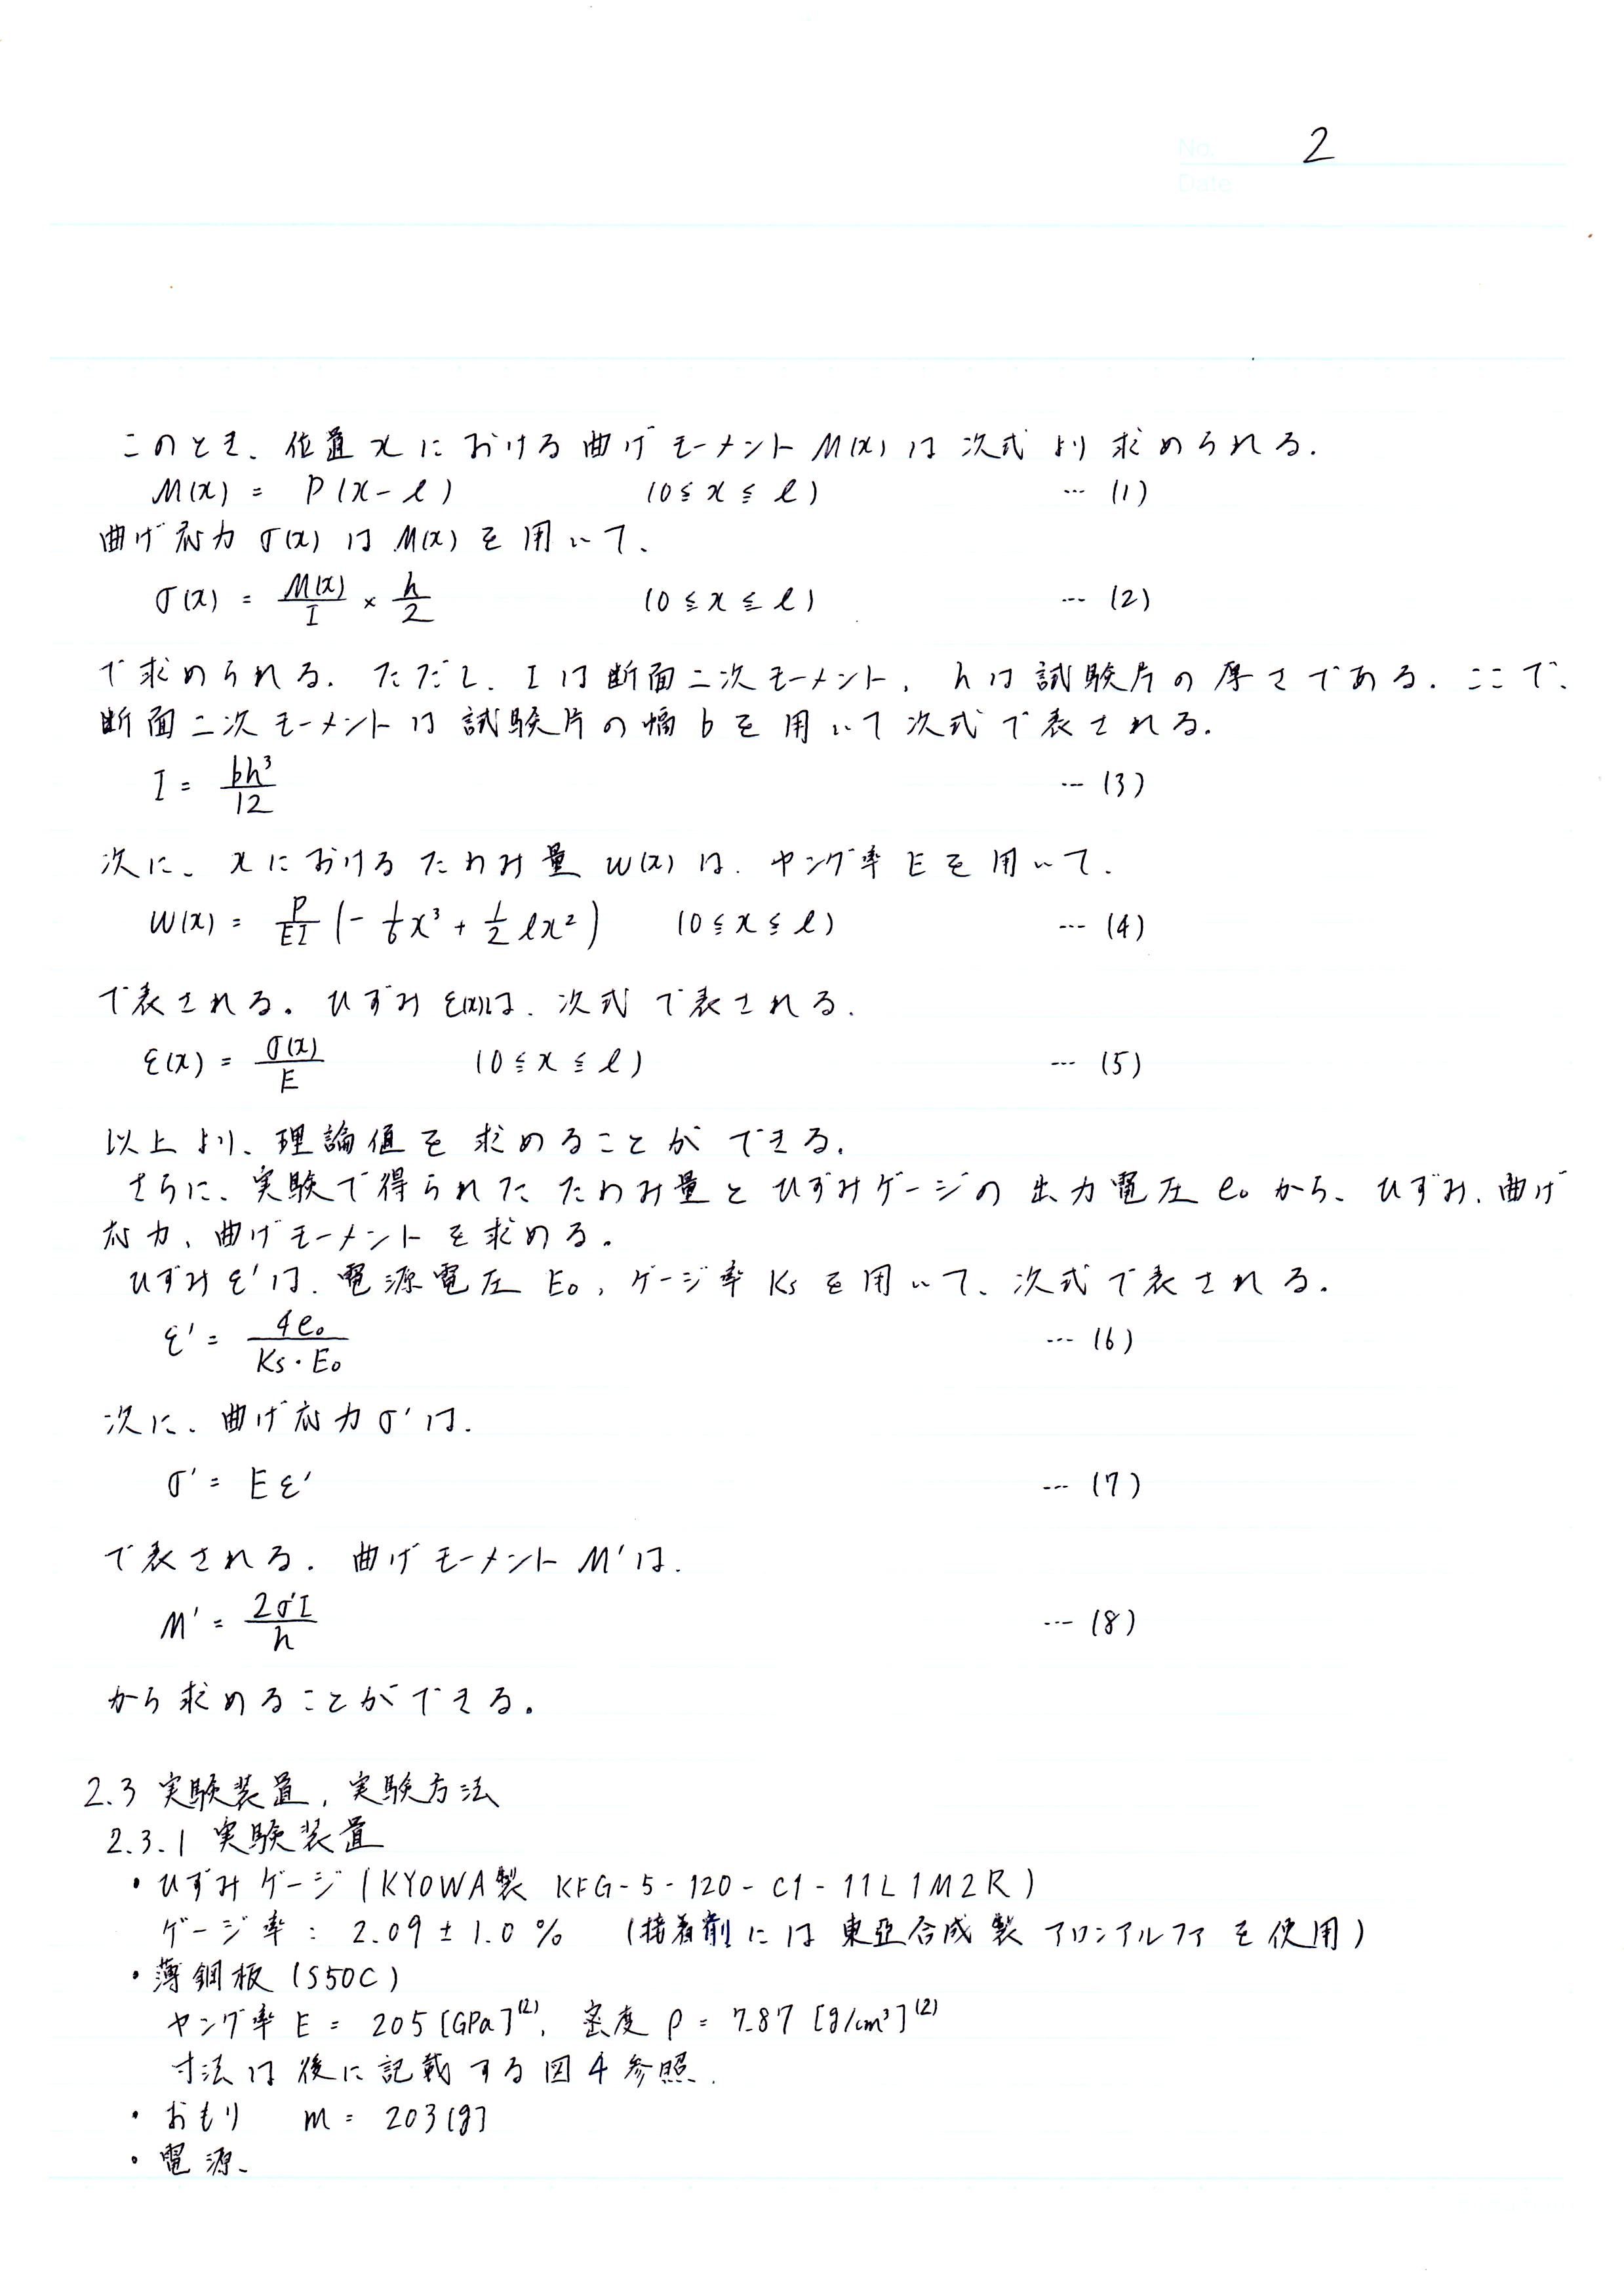 No. 2
Date
このとき、位置xにおける曲げモーメントM(x)は次式より求められる.
M(x) = P(x-ℓ) (0≦x≦ℓ) … (1)
曲げ応力σ(x)はM(x)を用いて、
σ(x) = M(x)/I × h/2 (0≦x≦ℓ) … (2)
で求められる. ただし、Iは断面二次モーメント, hは試験片の厚さである. ここで、
断面二次モーメントは試験片の幅bを用いて次式で表される.
I = bh³/12 … (3)
次に、xにおけるたわみ量w(x)は、ヤング率Eを用いて、
w(x) = P/EI (- 1/6 x³ + 1/2 ℓx²) (0≦x≦ℓ) … (4)
で表される。ひずみε(x)は、次式で表される.
ε(x) = σ(x)/E (0≦x≦ℓ) … (5)
以上より、理論値を求めることができる.
さらに、実験で得られたたわみ量とひずみゲージの出力電圧e₀から、ひずみ、曲げ
応力、曲げモーメントを求める。
ひずみε'は、電源電圧E₀, ゲージ率Ksを用いて、次式で表される.
ε' = 4e₀/Ks・E₀ … (6)
次に、曲げ応力σ'は、
σ' = Eε' … (7)
で表される. 曲げモーメントM'は、
M' = 2σ'I/h … (8)
から求めることができる。
2.3 実験装置, 実験方法
2.3.1 実験装置
・ひずみゲージ (KYOWA製 KFG-5-120-C1-11L1M2R)
ゲージ率: 2.09±1.0% (接着剤には東亞合成製アロンアルファを使用)
・薄鋼板 (S50C)
ヤング率E = 205[GPa]⁽²⁾, 密度ρ = 7.87[g/cm³]⁽²⁾
寸法は後に記載する図4参照.
・おもり m = 203[g]
・電源、